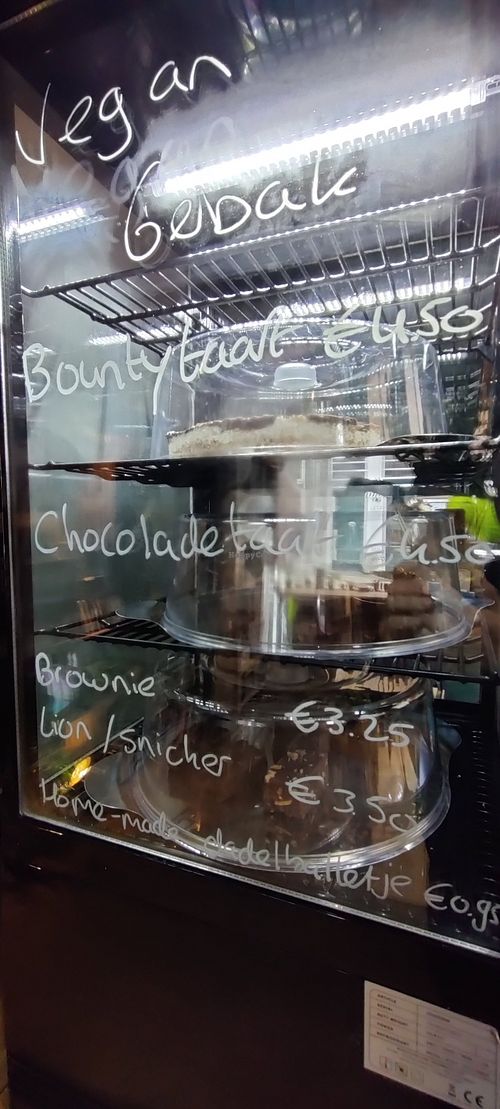 Vegan
Gebak
Bountytaart €4.50
Chocoladetaart €4.50
Brownie €3.25
Lion/snicher €3.50
Home-made dadelballetje €0.95
CE